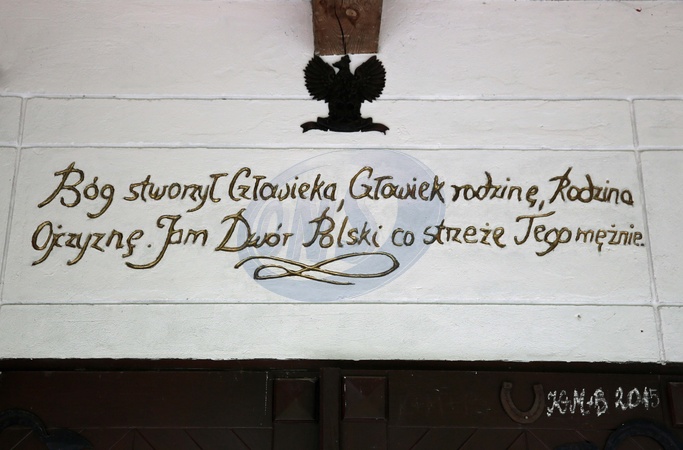 Bóg stworzył Człowieka, Człowiek rodzinę, Rodzina
Ojczyznę. Jam Dwór Polski co strzeże Tego mężnie.
K+M+B 2015